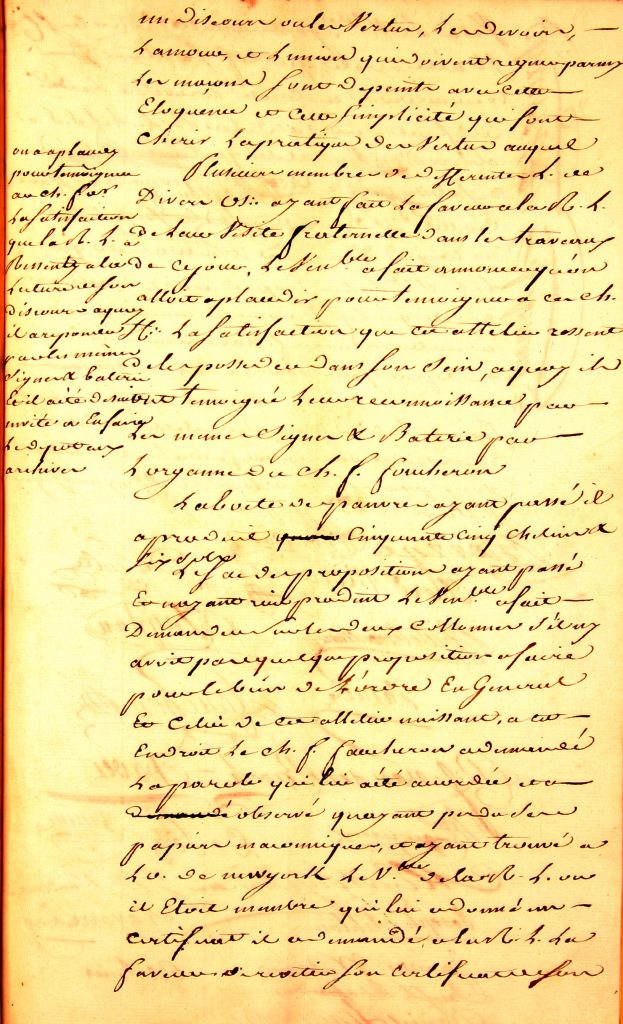 un discours ou les Vertus, les devoirs,
L'amour, et L'union qui doivent regner parmy
les maçons sont depeints avec cette
Eloquence et cette simplicité qui font
cherir la pratique des Vertus auquel
Plusieurs membres de differentes L. de
Divers O∴ ayant fait la faveur a la R. L.
de Leur Visite fraternelle dans les travaux
de ce jour, Le Ven.ble a fait annoncer qu'on
alloit aplaudir pour temoigner a ces ch.
ff∴ La satisfaction que cet attelier ressent
de les posseder dans son sein, aquoy ils
ont temoigné Leur reconnoissance par
les memes Signes & Baterie par
L'organne du ch. f. foucheron
La boete des pauvres ayant passé il
a produit Cinquante Cinq Chelins &
six
Le sac des propositions ayant passé
Et n'ayant rien produit Le Ven.ble a fait
Demander sur les deux Collonnes s'il n'y
avoit pas quelque proposition a faire
pour le bien de L'ordre En General
Et Celui de cet attelier naissant, a cet
Endroit Le ch. f. foucheron a demandé
La parole qui lui a été accordée et a
demandé observé qu'ayant perdu ses
papiers maconniques, et ayant trouvé a
L'o. de newyork Le V.ble de la R. L. ou
il Etoit membre qui lui a donné un
certificat il a demandé a la R. L. La
faveur de son certificat son
on a aplaudy
pour temoigner
au ch. f. or
La satisfaction
que la R. L. a
Ressenty a la
Lecture de son
discours aquoy
il a repondu
par les mêmes
Signes & baterie
Et il a été
invité a En faire
Le depot aux
archives